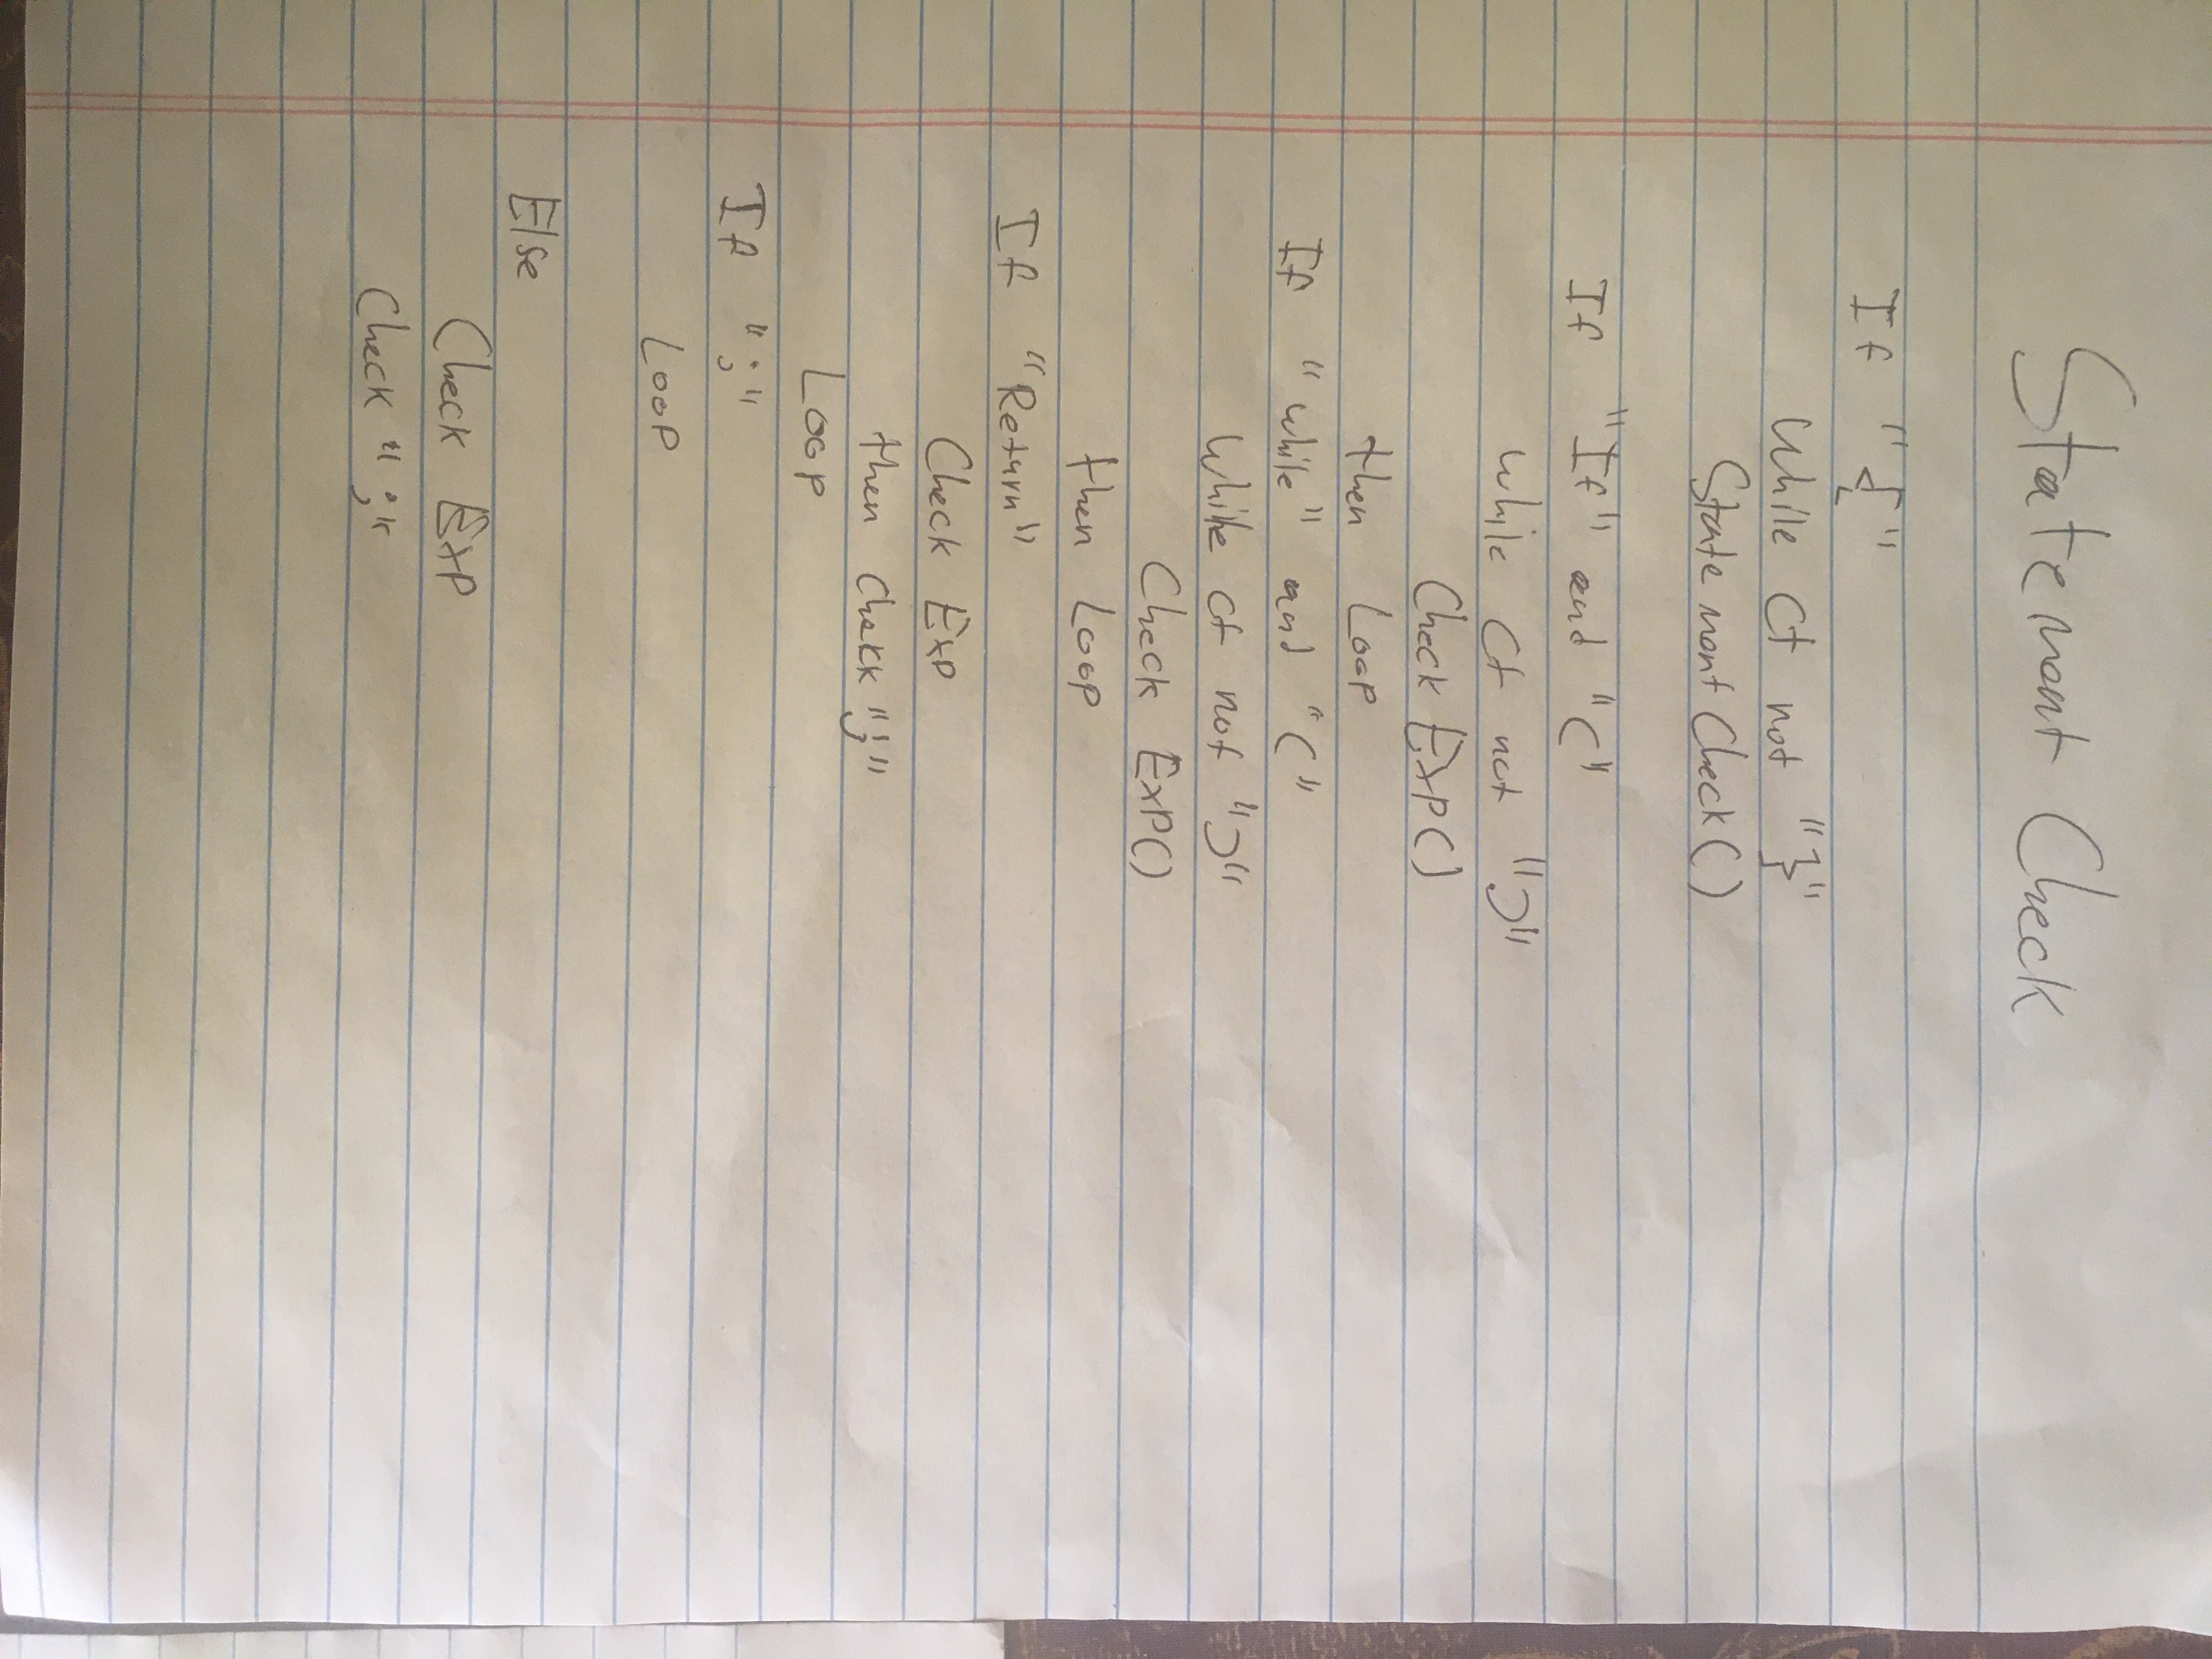 Statement Check
If "{"
While Ct not "}"
Statement Check()
If "If" and "("
while Ct not ")"
Check Exp()
then Loop
If "while" and "("
While Ct not ")"
Check Exp()
then Loop
If "Return"
Check Exp
then Check ";"
Loop
If ";"
Loop
Else
Check Exp
Check ";"